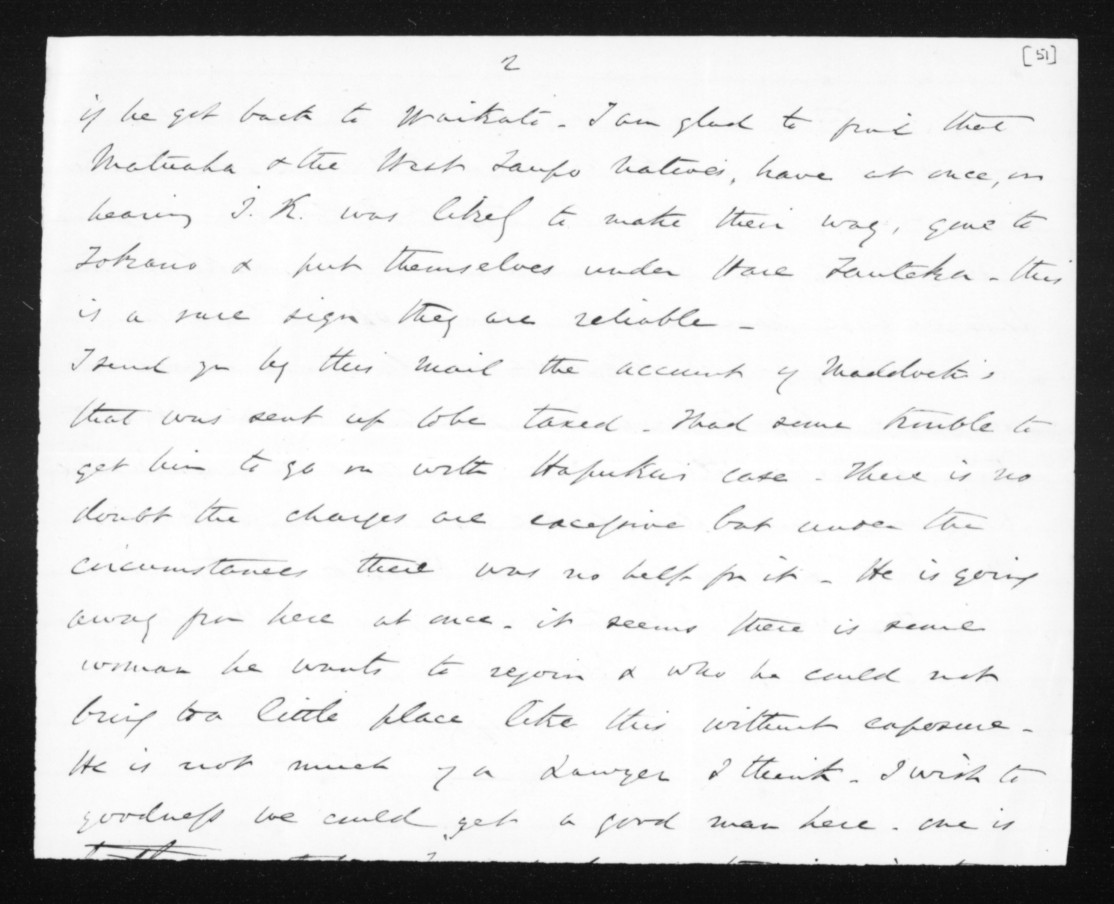 2
[51]
if he got back to Waikato - I am glad to find that
Matuaha & the West Taupo natives, have at once, on
hearing T. K. was likely to make their way, gone to
Tokano & put themselves under Hare Tauteka - this
is a sure sign they are reliable -
I send you by this mail the account of Maddock's
that was sent up to be taxed - I had some trouble to
get him to go on with Hapuku's case - There is no
doubt the charges are excessive but under the
circumstances there was no help for it - He is going
away from here at once - it seems there is some
woman he wants to rejoin & who he could not
bring to a little place like this without exposure -
He is not much of a Lawyer I think - I wish to
goodness we could get a good man here - one is